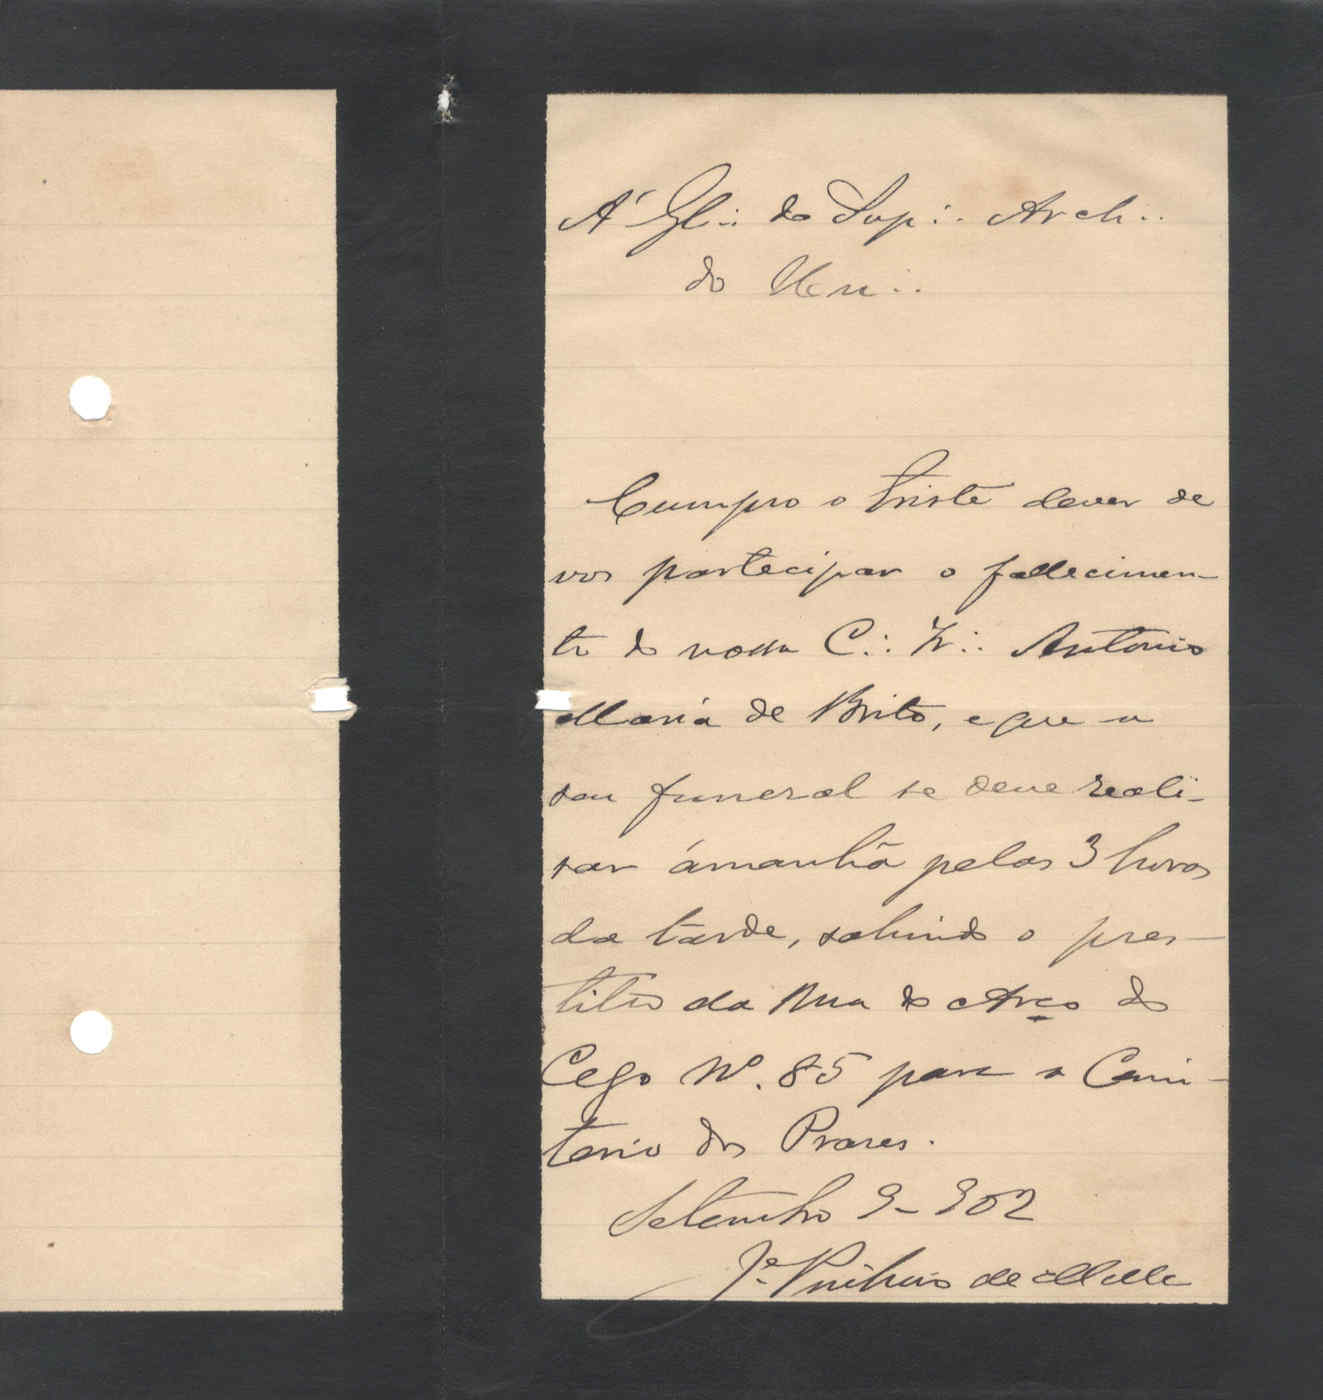 A' Gl∴ do Sup∴ Arch∴
do Un∴
Cumpro o triste dever de
vos partecipar o fallecimen-
to do nosso C∴ Ir∴ Antonio
Maria de Brito, e que o
seu funeral se deve reali-
sar ámanhã pelas 3 horas
da tarde, sahindo o pres-
tito da Rua do Arco do
Cego Nº. 85 para o Cemi-
terio dos Prazeres.
Setembro 9-902
Je. Pinheiro de Mello